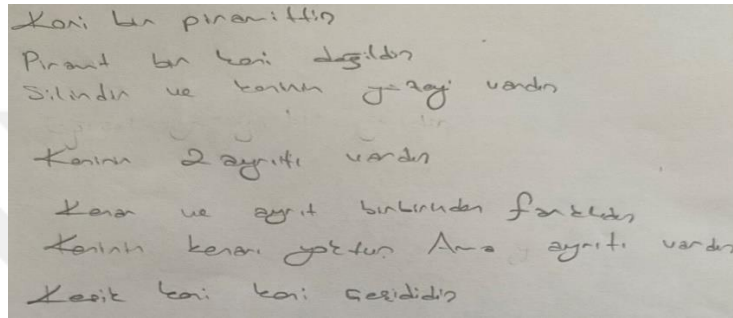 Koni bir piramittir
Piramit bir koni değildir
Silindir ve koninin yüzeyi vardır
Koninin 2 ayrıtı vardır
Kenar ve ayrıt birbirinden farklıdır
Koninin kenarı yoktur Ama ayrıtı vardır
Kesik koni koni çeşididir